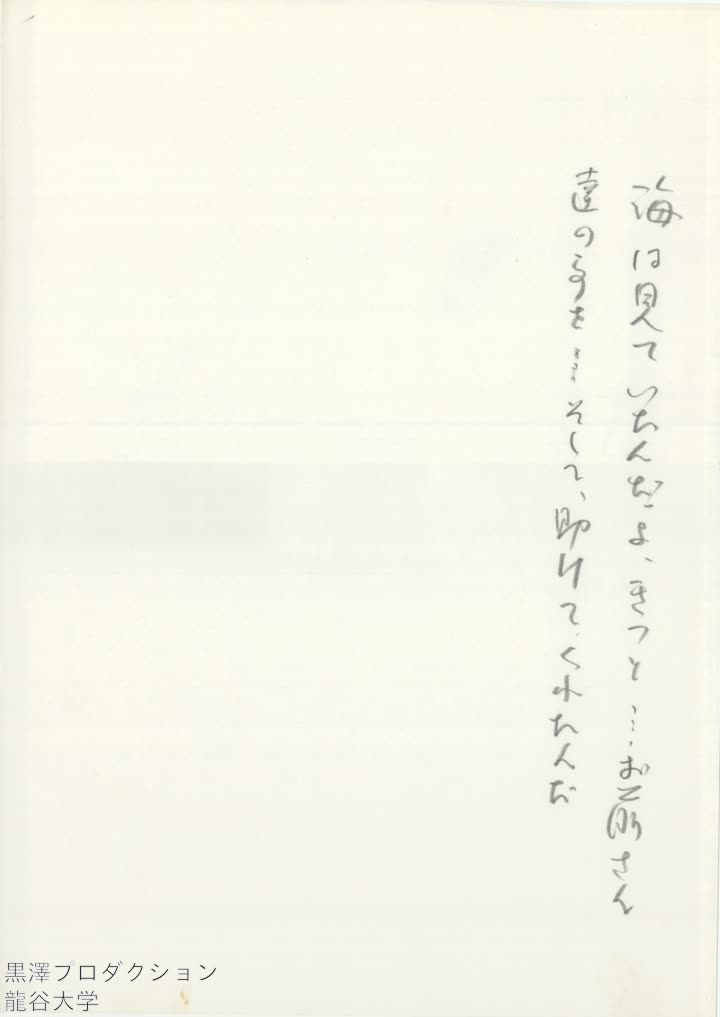 海は見ていたんだよ、きっと……お前さん
達の事を……そして、助けてくれたんだ
黒澤プロダクション
龍谷大学